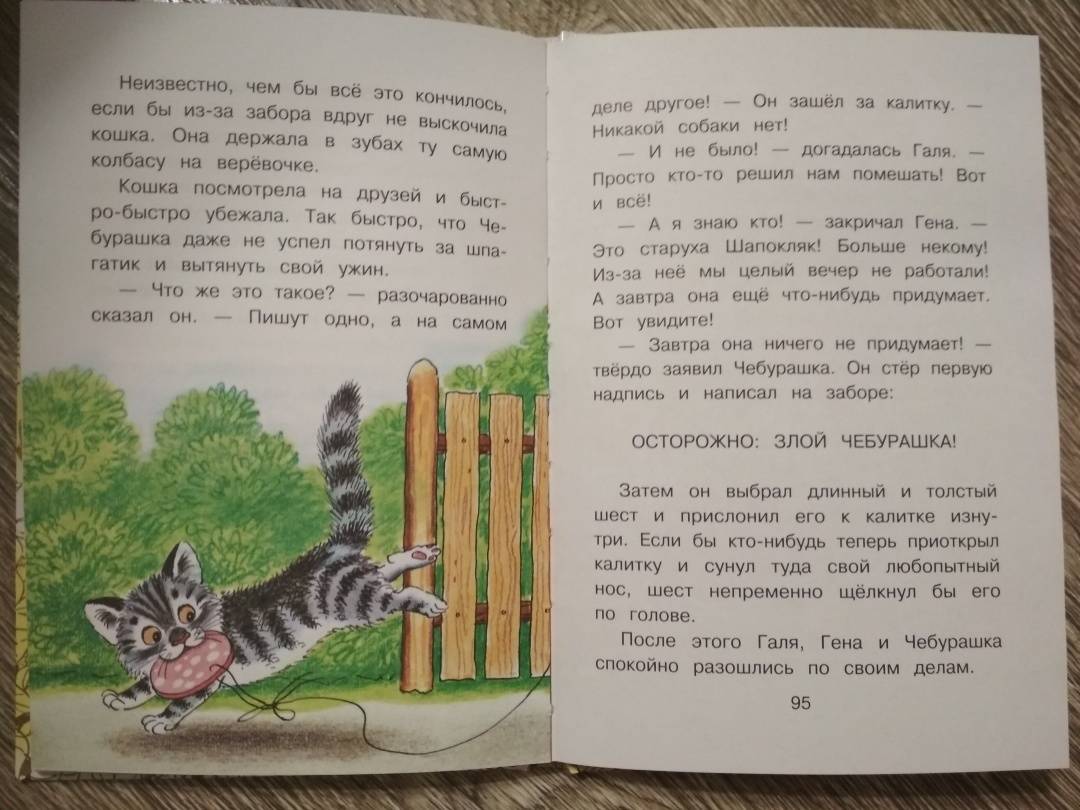 Неизвестно, чем бы всё это кончилось,
если бы из-за забора вдруг не выскочила
кошка. Она держала в зубах ту самую
колбасу на верёвочке.
Кошка посмотрела на друзей и быст-
ро-быстро убежала. Так быстро, что Че-
бурашка даже не успел потянуть за шпа-
гатик и вытянуть свой ужин.
— Что же это такое? — разочарованно
сказал он. — Пишут одно, а на самом
деле другое! — Он зашёл за калитку. —
Никакой собаки нет!
— И не было! — догадалась Галя. —
Просто кто-то решил нам помешать! Вот
и всё!
— А я знаю кто! — закричал Гена. —
Это старуха Шапокляк! Больше некому!
Из-за неё мы целый вечер не работали!
А завтра она ещё что-нибудь придумает.
Вот увидите!
— Завтра она ничего не придумает! —
твёрдо заявил Чебурашка. Он стёр первую
надпись и написал на заборе:
ОСТОРОЖНО: ЗЛОЙ ЧЕБУРАШКА!
Затем он выбрал длинный и толстый
шест и прислонил его к калитке изну-
три. Если бы кто-нибудь теперь приоткрыл
калитку и сунул туда свой любопытный
нос, шест непременно щёлкнул бы его
по голове.
После этого Галя, Гена и Чебурашка
спокойно разошлись по своим делам.
95